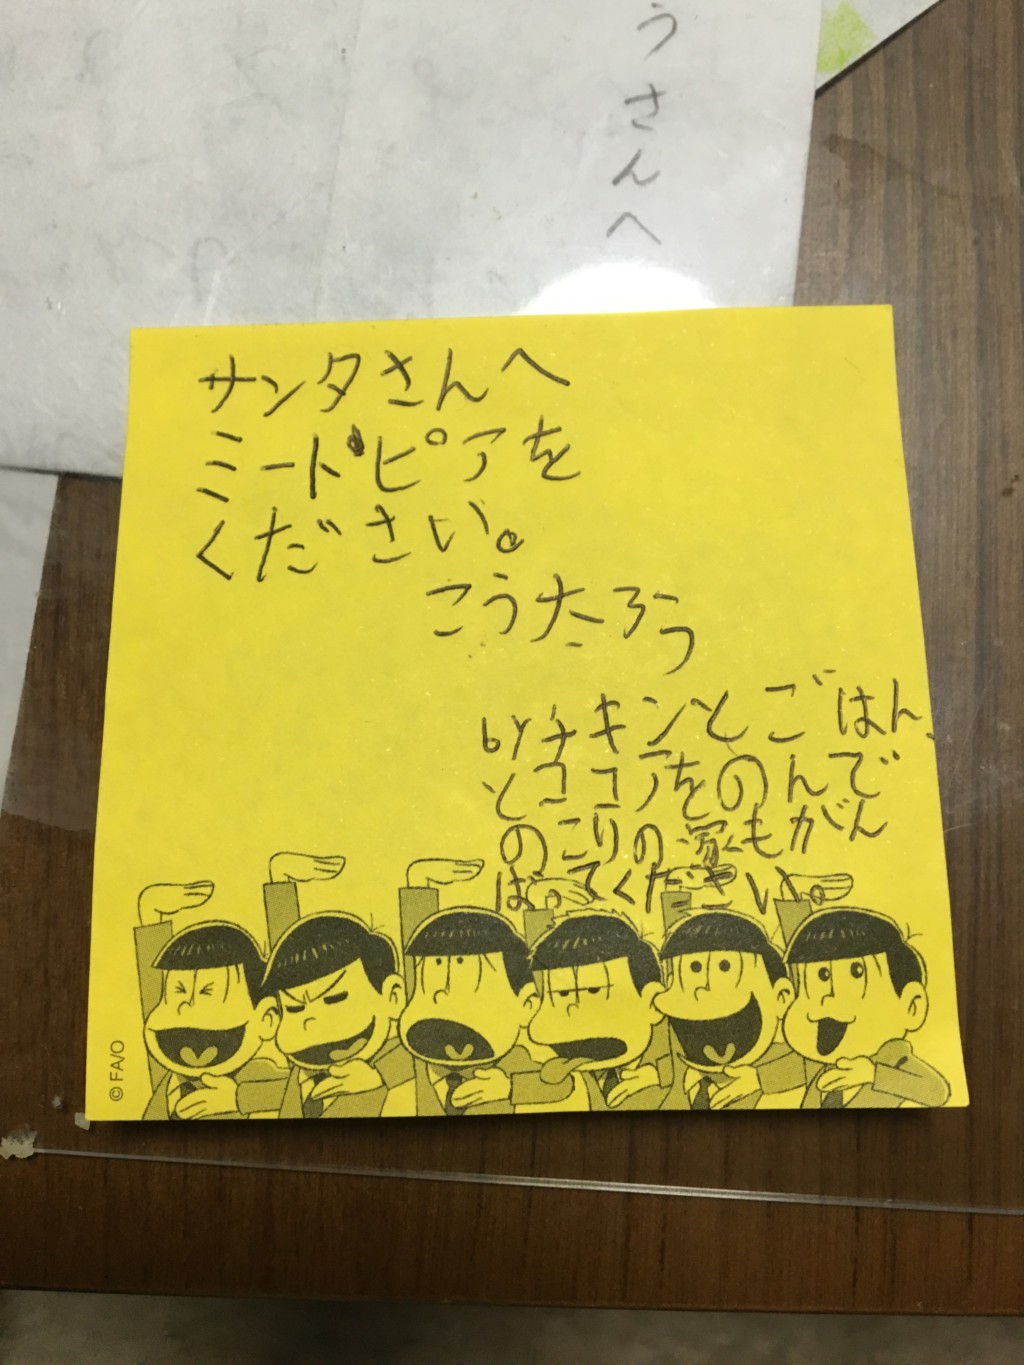 うさんへ
サンタさんへ
ミードピアを
ください。
こうたろう
byチキンとごはん
とココアをのんで
のこりの家もがん
ばってください。
© FA/O